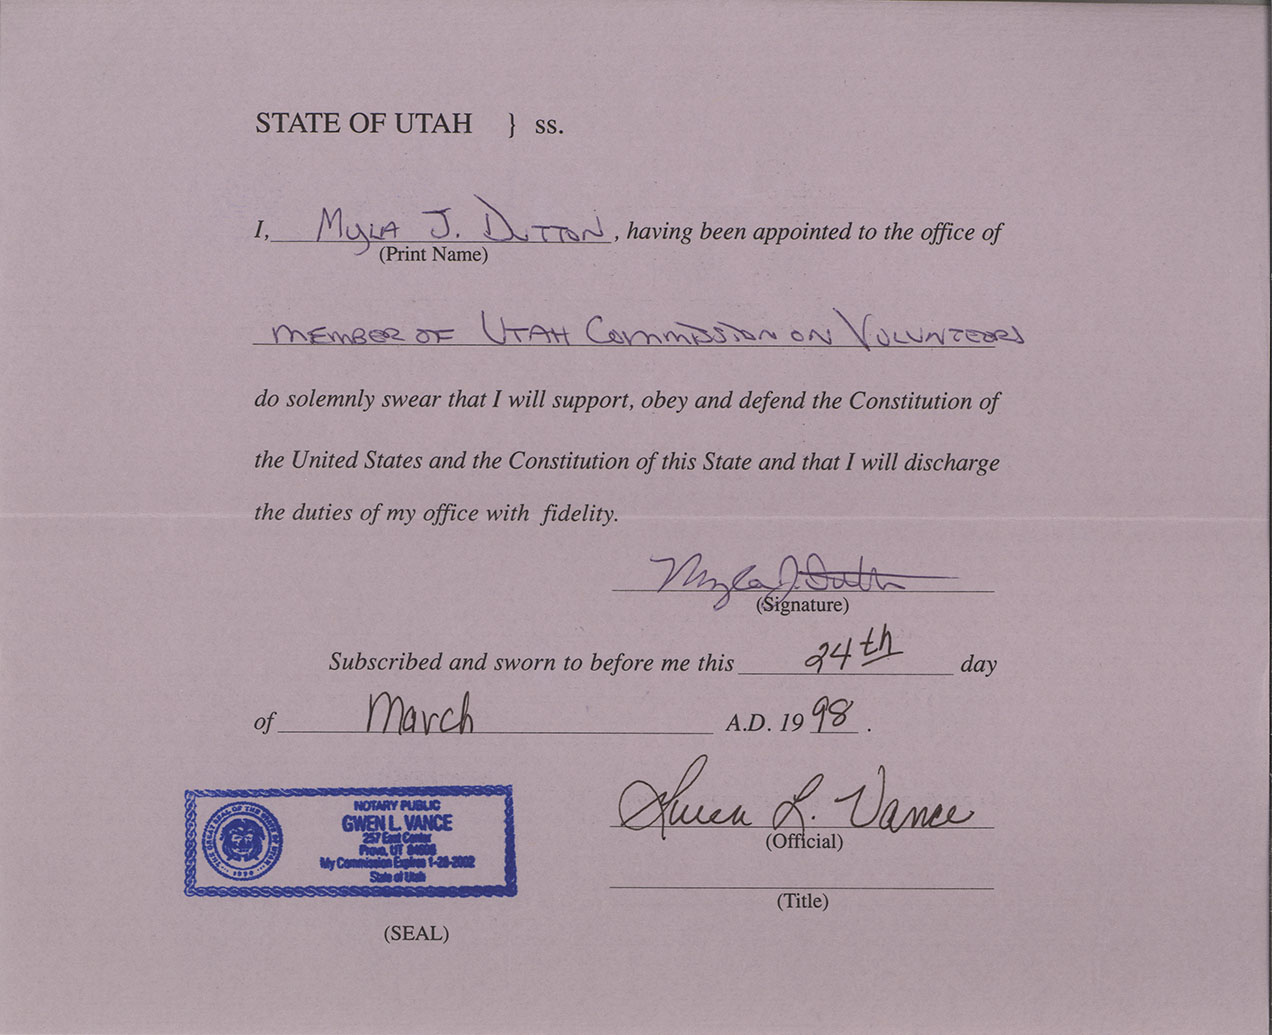 STATE OF UTAH } ss.
I, MYLA J. DUTTON, having been appointed to the office of
(Print Name)
MEMBER OF UTAH COMMISSION ON VOLUNTEERS
do solemnly swear that I will support, obey and defend the Constitution of
the United States and the Constitution of this State and that I will discharge
the duties of my office with fidelity.
Myla J. Dutton
(Signature)
Subscribed and sworn to before me this 24th day
of March A.D. 1998.
Gwen L. Vance
(Official)
(Title)
THE GREAT SEAL OF THE STATE OF UTAH
1896
NOTARY PUBLIC
GWEN L. VANCE
257 East Center
Provo, UT
My Commission Expires 1-28-2002
State of Utah
(SEAL)